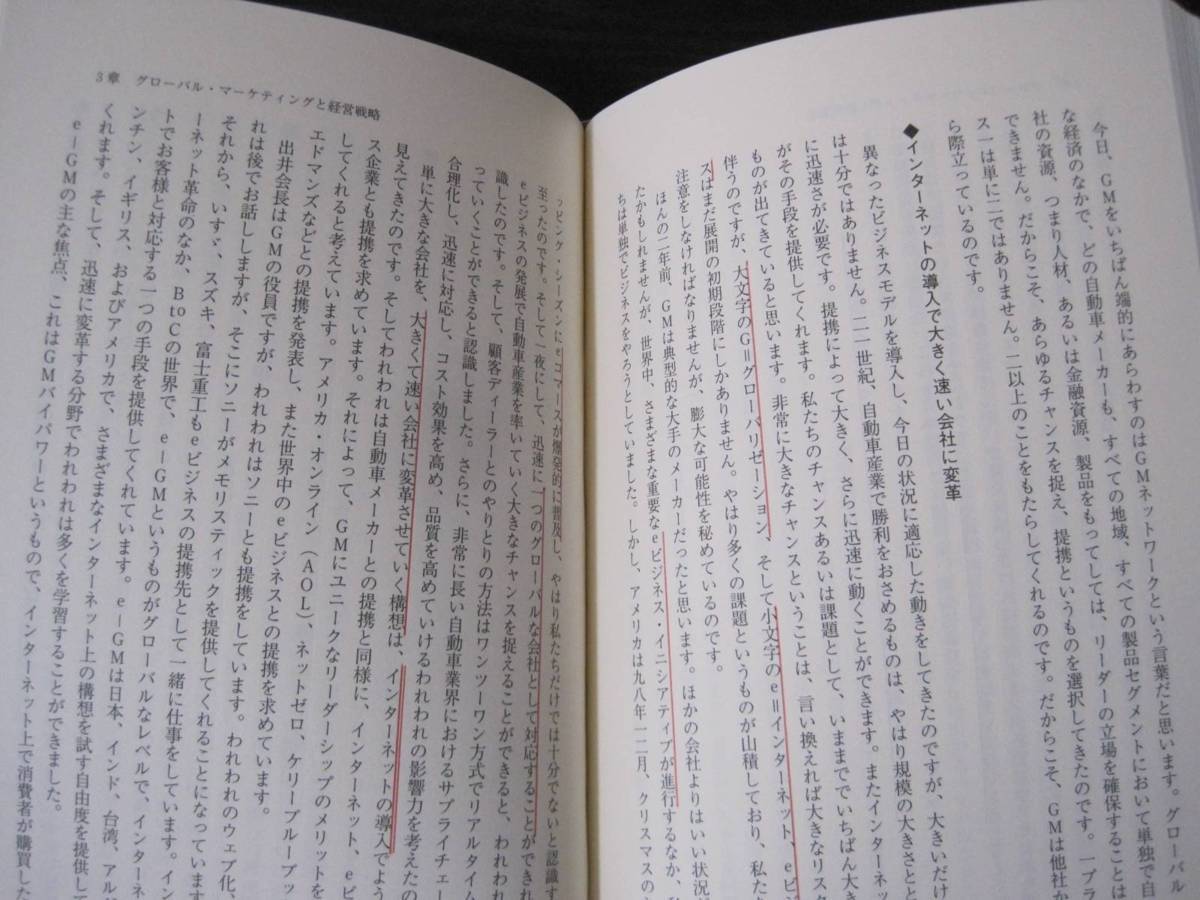 今日、GMをいちばん端的にあらわすのはGMネットワークという言葉だと思います。グローバル
な経済のなかで、どの自動車メーカーも、すべての地域、すべての製品セグメントにおいて単独で自
社の資源、つまり人材、あるいは金融資源、製品をもってしては、リーダーの立場を確保することは
できません。だからこそ、あらゆるチャンスを捉え、提携というものを選択してきたのです。一プラ
ス一は単に二ではありません。二以上のことをもたらしてくれるのです。だからこそ、GMは他社か
ら際立っているのです。
◆インターネットの導入で大きく速い会社に変革
異なったビジネスモデルを導入し、今日の状況に適応した動きをしてきたのですが、大きいだけ
は十分ではありません。二一世紀、自動車産業で勝利をおさめるものは、やはり規模の大きさとと
に迅速さが必要です。提携によって大きく、さらに迅速に動くことができます。またインターネッ
がその手段を提供してくれます。私たちのチャンスあるいは課題として、いままででいちばん大き
ものが出てきていると思います。非常に大きなチャンスということは、言い換えれば大きなリスク
伴うのですが、大文字のG＝グローバリゼーション、そして小文字のe＝インターネット、eビジ
スはまだ展開の初期段階にしかありません。やはり多くの課題というものが山積しており、私た
注意をしなければなりませんが、膨大な可能性を秘めているのです。
ほんの二年前、GMは典型的な大手のメーカーだったと思います。ほかの会社よりはいい状況だ
たかもしれませんが、世界中、さまざまな重要なeビジネス・イニシアティブが進行するなか、私
ちは単独でビジネスをやろうとしていました。しかし、アメリカは九八年一二月、クリスマスの
3章　グローバル・マーケティングと経営戦略
ッピング・シーズンにeコマースが爆発的に普及し、やはり私たちだけでは十分でないと認識す
至ったのです。そして一夜にして、迅速に一つのグローバルな会社として対応することができれ
eビジネスの発展で自動車産業を率いていく大きなチャンスを捉えることができると、われわれ
識したのです。そして、顧客ディーラーとのやりとりの方法はワンツーワン方式でリアルタイム
っていくことができると認識しました。さらに、非常に長い自動車業界におけるサプライチェー
合理化し、迅速に対応し、コスト効果を高め、品質を高めていけるわれわれの影響力を考えたの
単に大きな会社を、大きくて速い会社に変革させていく構想は、インターネットの導入でよう
見えてきたのです。そしてわれわれは自動車メーカーとの提携と同様に、インターネット、eビ
ス企業とも提携を求めています。それによって、GMにユニークなリーダーシップのメリットを
してくれると考えています。アメリカ・オンライン（AOL）、ネットゼロ、ケリーブルーブッ
エドマンズなどとの提携を発表し、また世界中のeビジネスとの提携を求めています。
出井会長はGMの役員ですが、われわれはソニーとも提携をしています。われわれのウェブ化、
れは後でお話ししますが、そこにソニーがメモリスティックを提供してくれることになっていま
それから、いすゞ、スズキ、富士重工もeビジネスの提携先として一緒に仕事をしています。イン
ーネット革命のなか、BtoCの世界で、e－GMというものがグローバルなレベルで、インターネ
トでお客様と対応する一つの手段を提供してくれています。e－GMは日本、インド、台湾、アルゼ
ンチン、イギリス、およびアメリカで、さまざまなインターネット上の構想を試す自由度を提供して
くれます。そして、迅速に変革する分野でわれわれは多くを学習することができました。
e－GMの主な焦点、これはGMバイパワーというもので、インターネット上で消費者が購買した